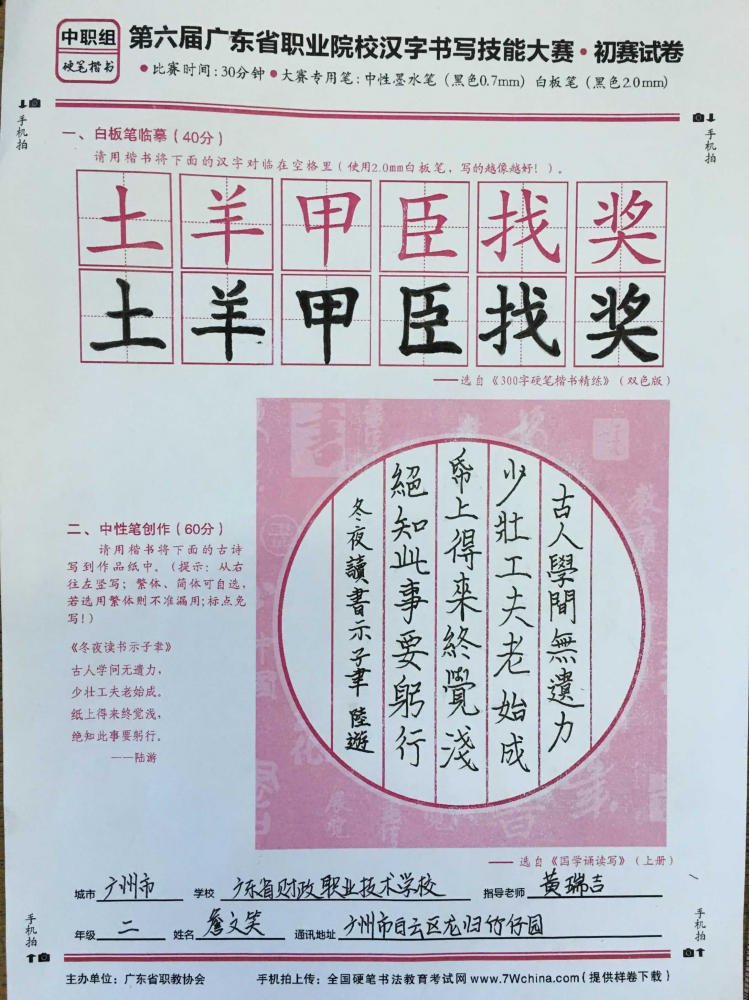 中职组
硬笔楷书
第六届广东省职业院校汉字书写技能大赛·初赛试卷
●比赛时间:30分钟●大赛专用笔:中性墨水笔（黑色0.7mm）白板笔（黑色2.0mm）
手机拍
手机拍
一、白板笔临摹（40分）
请用楷书将下面的汉字对临在空格里（使用2.0mm白板笔，写的越像越好！）。
土羊甲臣找奖
土羊甲臣找奖
——选自《300字硬笔楷书精练》（双色版）
二、中性笔创作（60分）
请用楷书将下面的古诗
写到作品纸中。（提示：从右
往左竖写；繁体、简体可自选，
若选用繁体则不准漏用;标点免
写！）
《冬夜读书示子聿》
古人学问无遗力，
少壮工夫老始成。
纸上得来终觉浅，
绝知此事要躬行。
——陆游
古人學間無遺力
少壯工夫老始成
帋上得來終覺淺
絕知此事要躬行
冬夜讀書示子聿 陸遊
——选自《国学诵读写》（上册）
城市 广州市 学校 广东省财政职业技术学校 指导老师 黄瑞吉
年级 二 姓名 詹文笑 通讯地址 广州市白云区龙归竹仔园
手机拍
手机拍
主办单位：广东省职教协会 手机拍上传：全国硬笔书法教育考试网www.7Wchina.com（提供样卷下载）